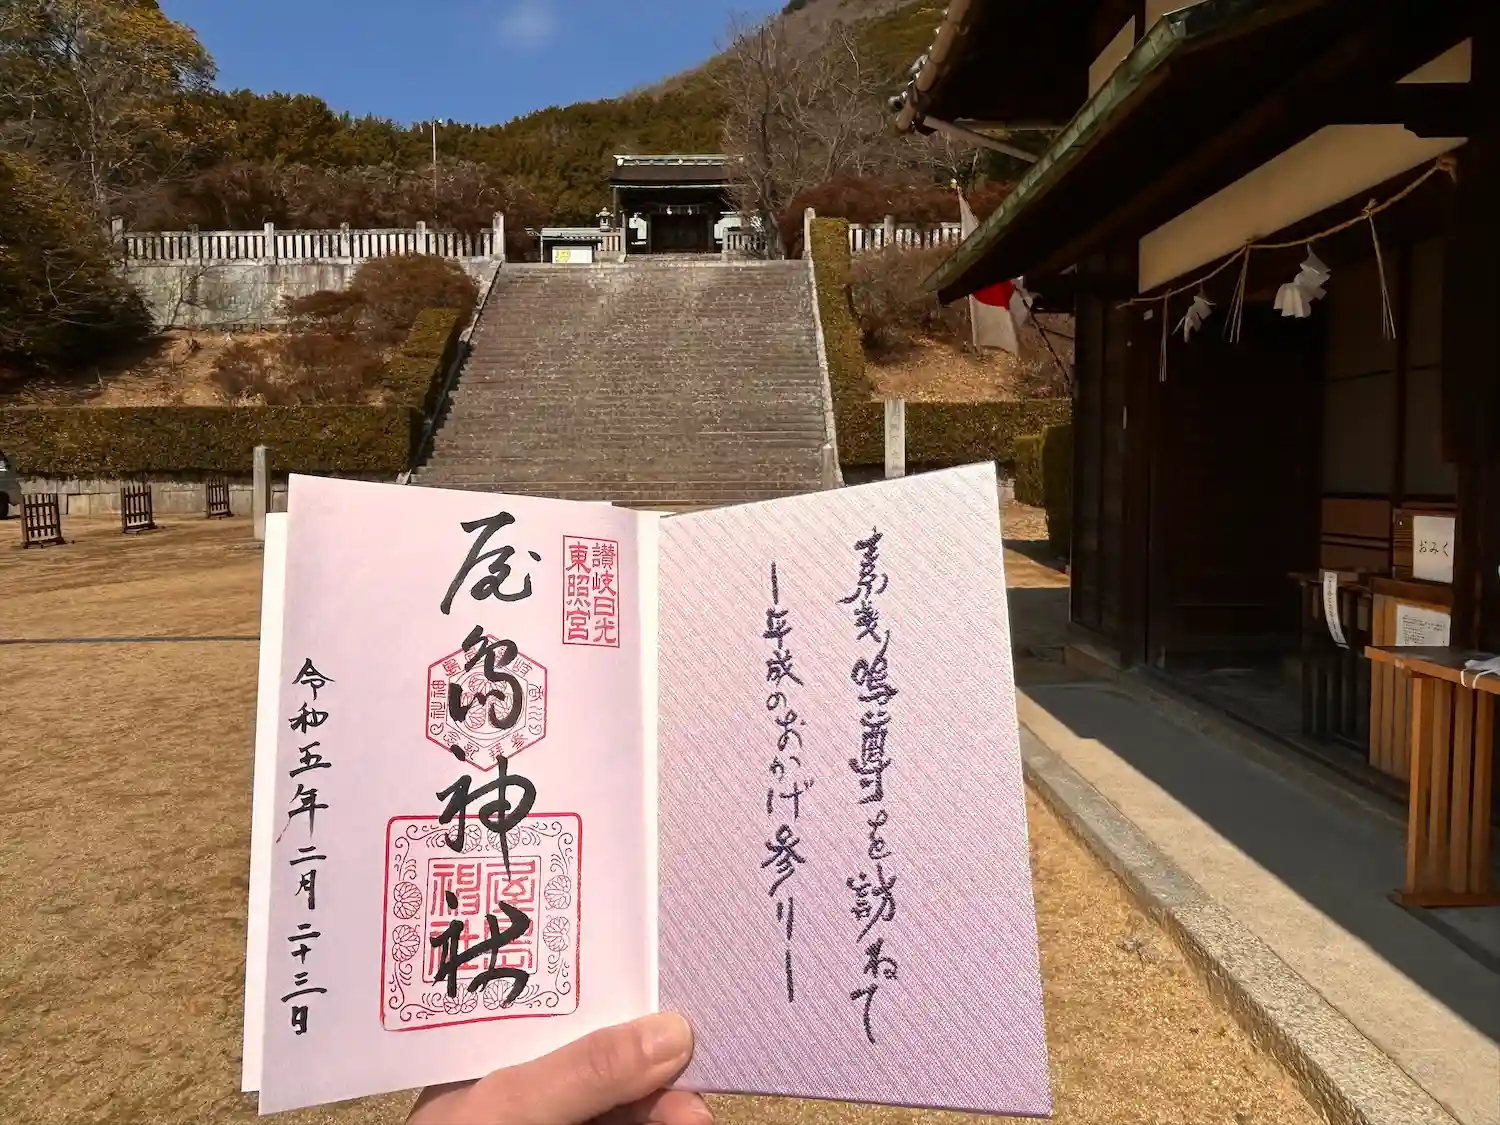 讃岐日光
東照宮
屋島神社
令和五年二月二十三日
素戔嗚尊を訪ねて
ー平成のおかげ参りー
屋島
神社
おみく